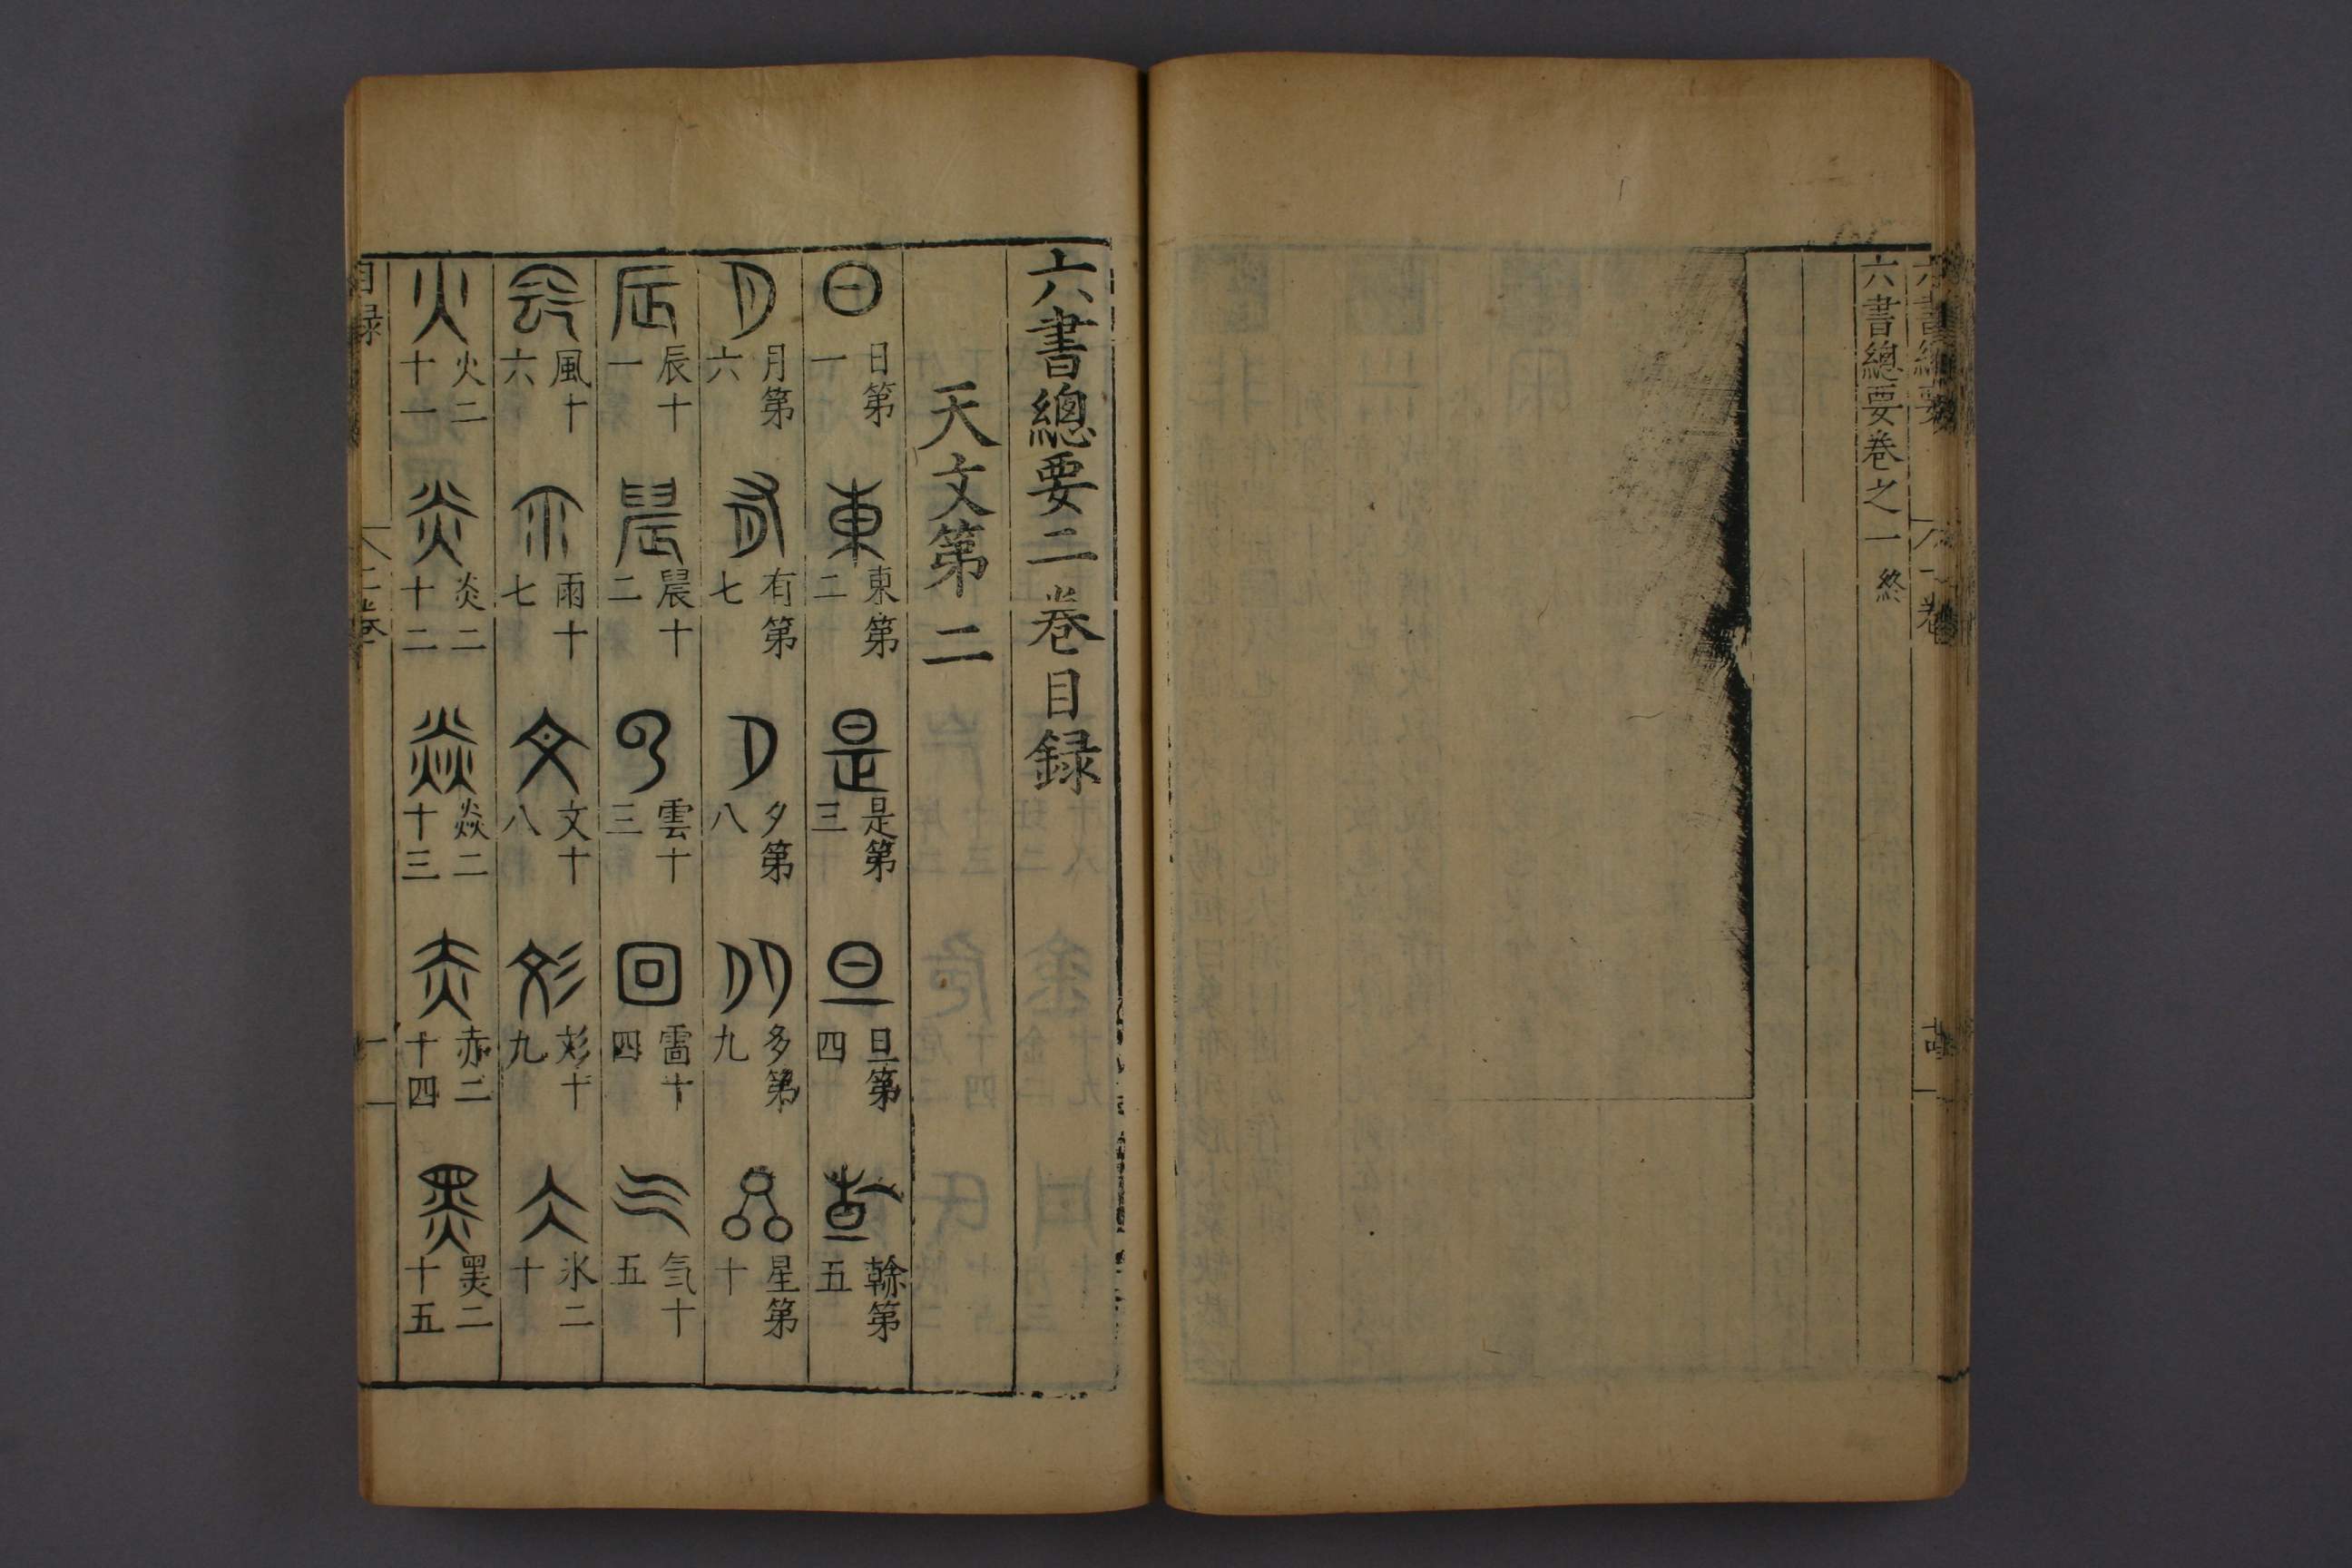 六書總要
卷
六書總要卷之一 終
六書總要二卷目録
天文第二
日 日第一 東 東第二 是 是第三 旦 旦第四 倝第五
月 月第六 有 有第七 夕 夕第八 多 多第九 星第十
辰 辰十一 晨 晨十二 雲十三 回 雷十四 气 气十五
風十六 雨 雨十七 文 文十八 彣 彣十九 仌 氷二十
火 火二十一 炎 炎二十二 焱 焱二十三 赤 赤二十四 黑 黑二十五
目録 二卷 一